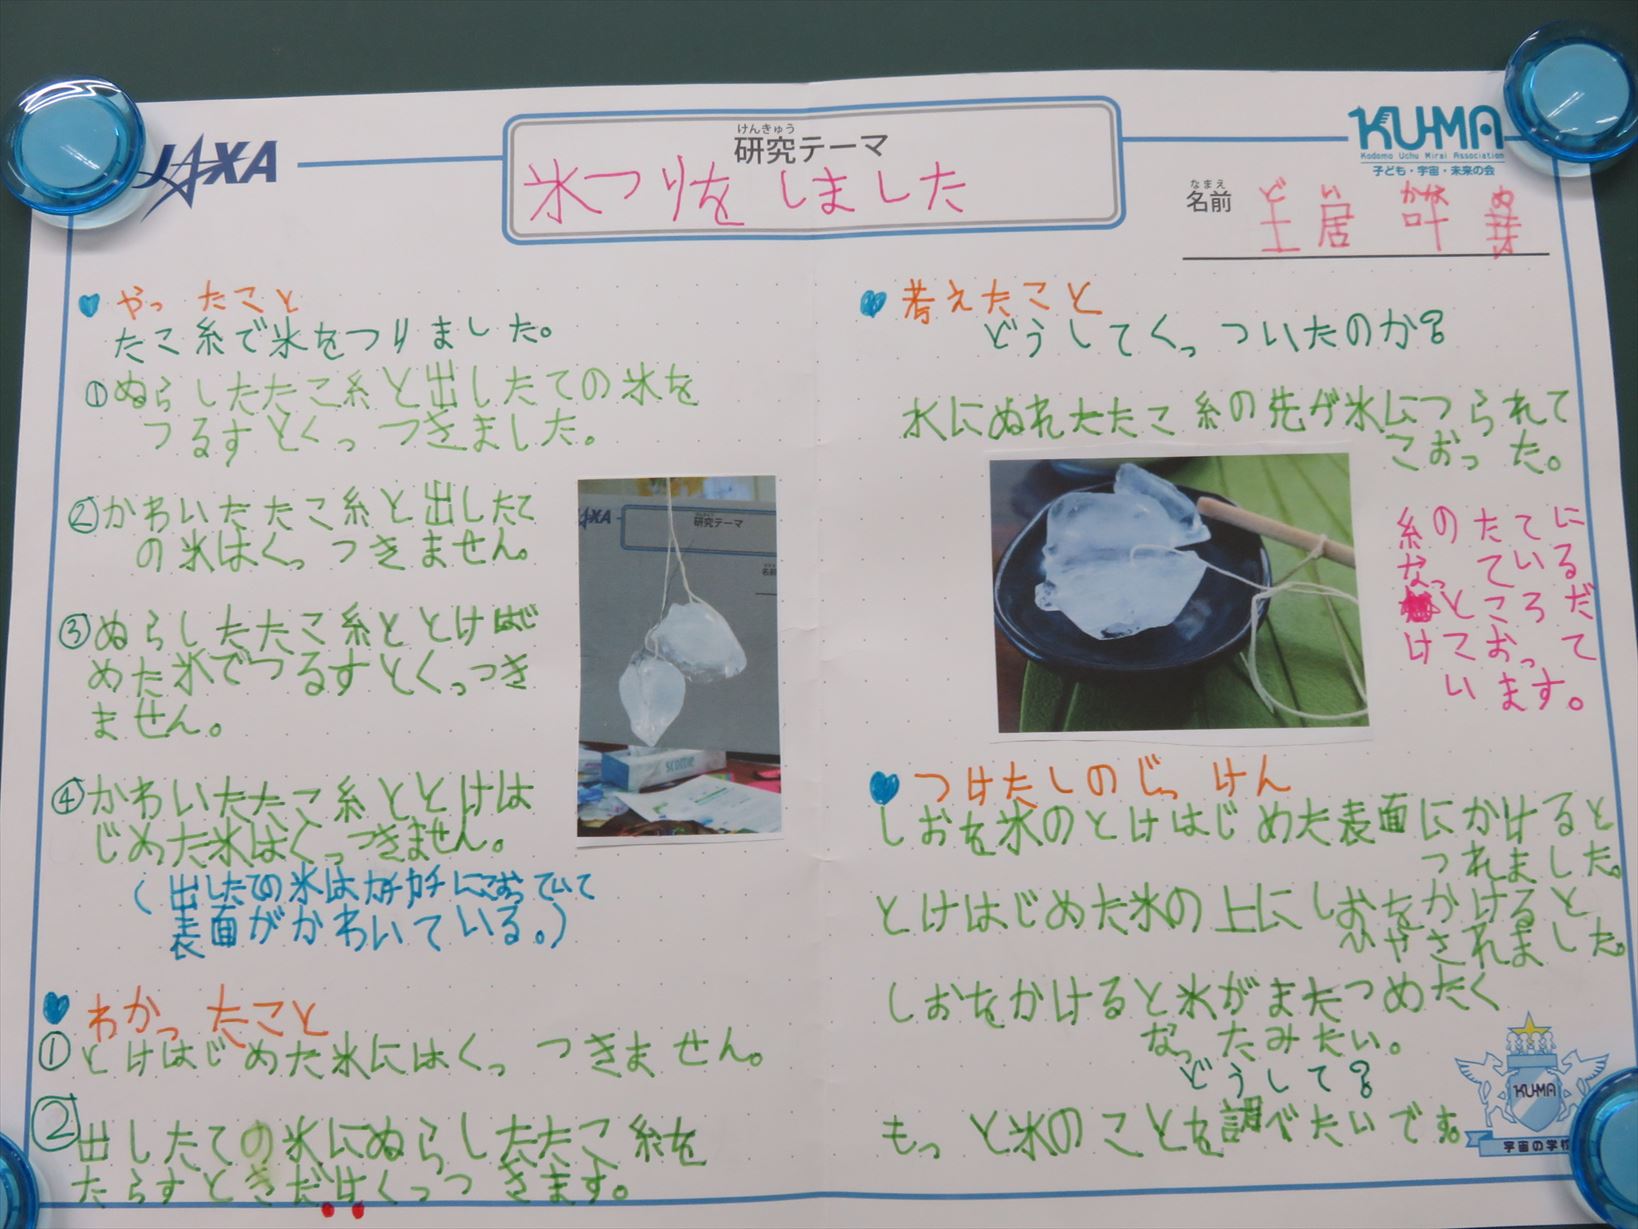 JAXA
けんきゅう
研究テーマ
氷つりをしました
KUMA
Kodomo Uchu Mirai Association
子ども・宇宙・未来の会
なまえ
名前
ど い かな め
土居 叶芽
やったこと
たこ糸で氷をつりました。
①ぬらしたたこ糸と出したての氷を
つるすとくっつきました。
②かわいたたこ糸と出したて
の氷はくっつきません。
③ぬらしたたこ糸ととけはじ
めた氷でつるすとくっつき
ません。
④かわいたたこ糸ととけは
じめた氷はくっつきません。
(出したての氷はカチカチにこおっていて
表面がかわいている。)
わかったこと
①とけはじめた氷にはくっつきません。
②出したての氷にぬらしたたこ糸を
たらすときだけくっつきます。
JAXA
研究テーマ
名前
scottie
考えたこと
どうしてくっついたのか?
水にぬれたたこ糸の先が氷につられて
こおった。
糸のたてに
なっている
ところだ
けこおって
います。
つけたしのじっけん
しおを氷のとけはじめた表面にかけると
つれました。
とけはじめた氷の上にしおをかけると
ひやされました。
しおをかけると氷がまたつめたく
なったみたい。
どうして?
もっと氷のことを調べたいです。
KUMA
宇宙の学校